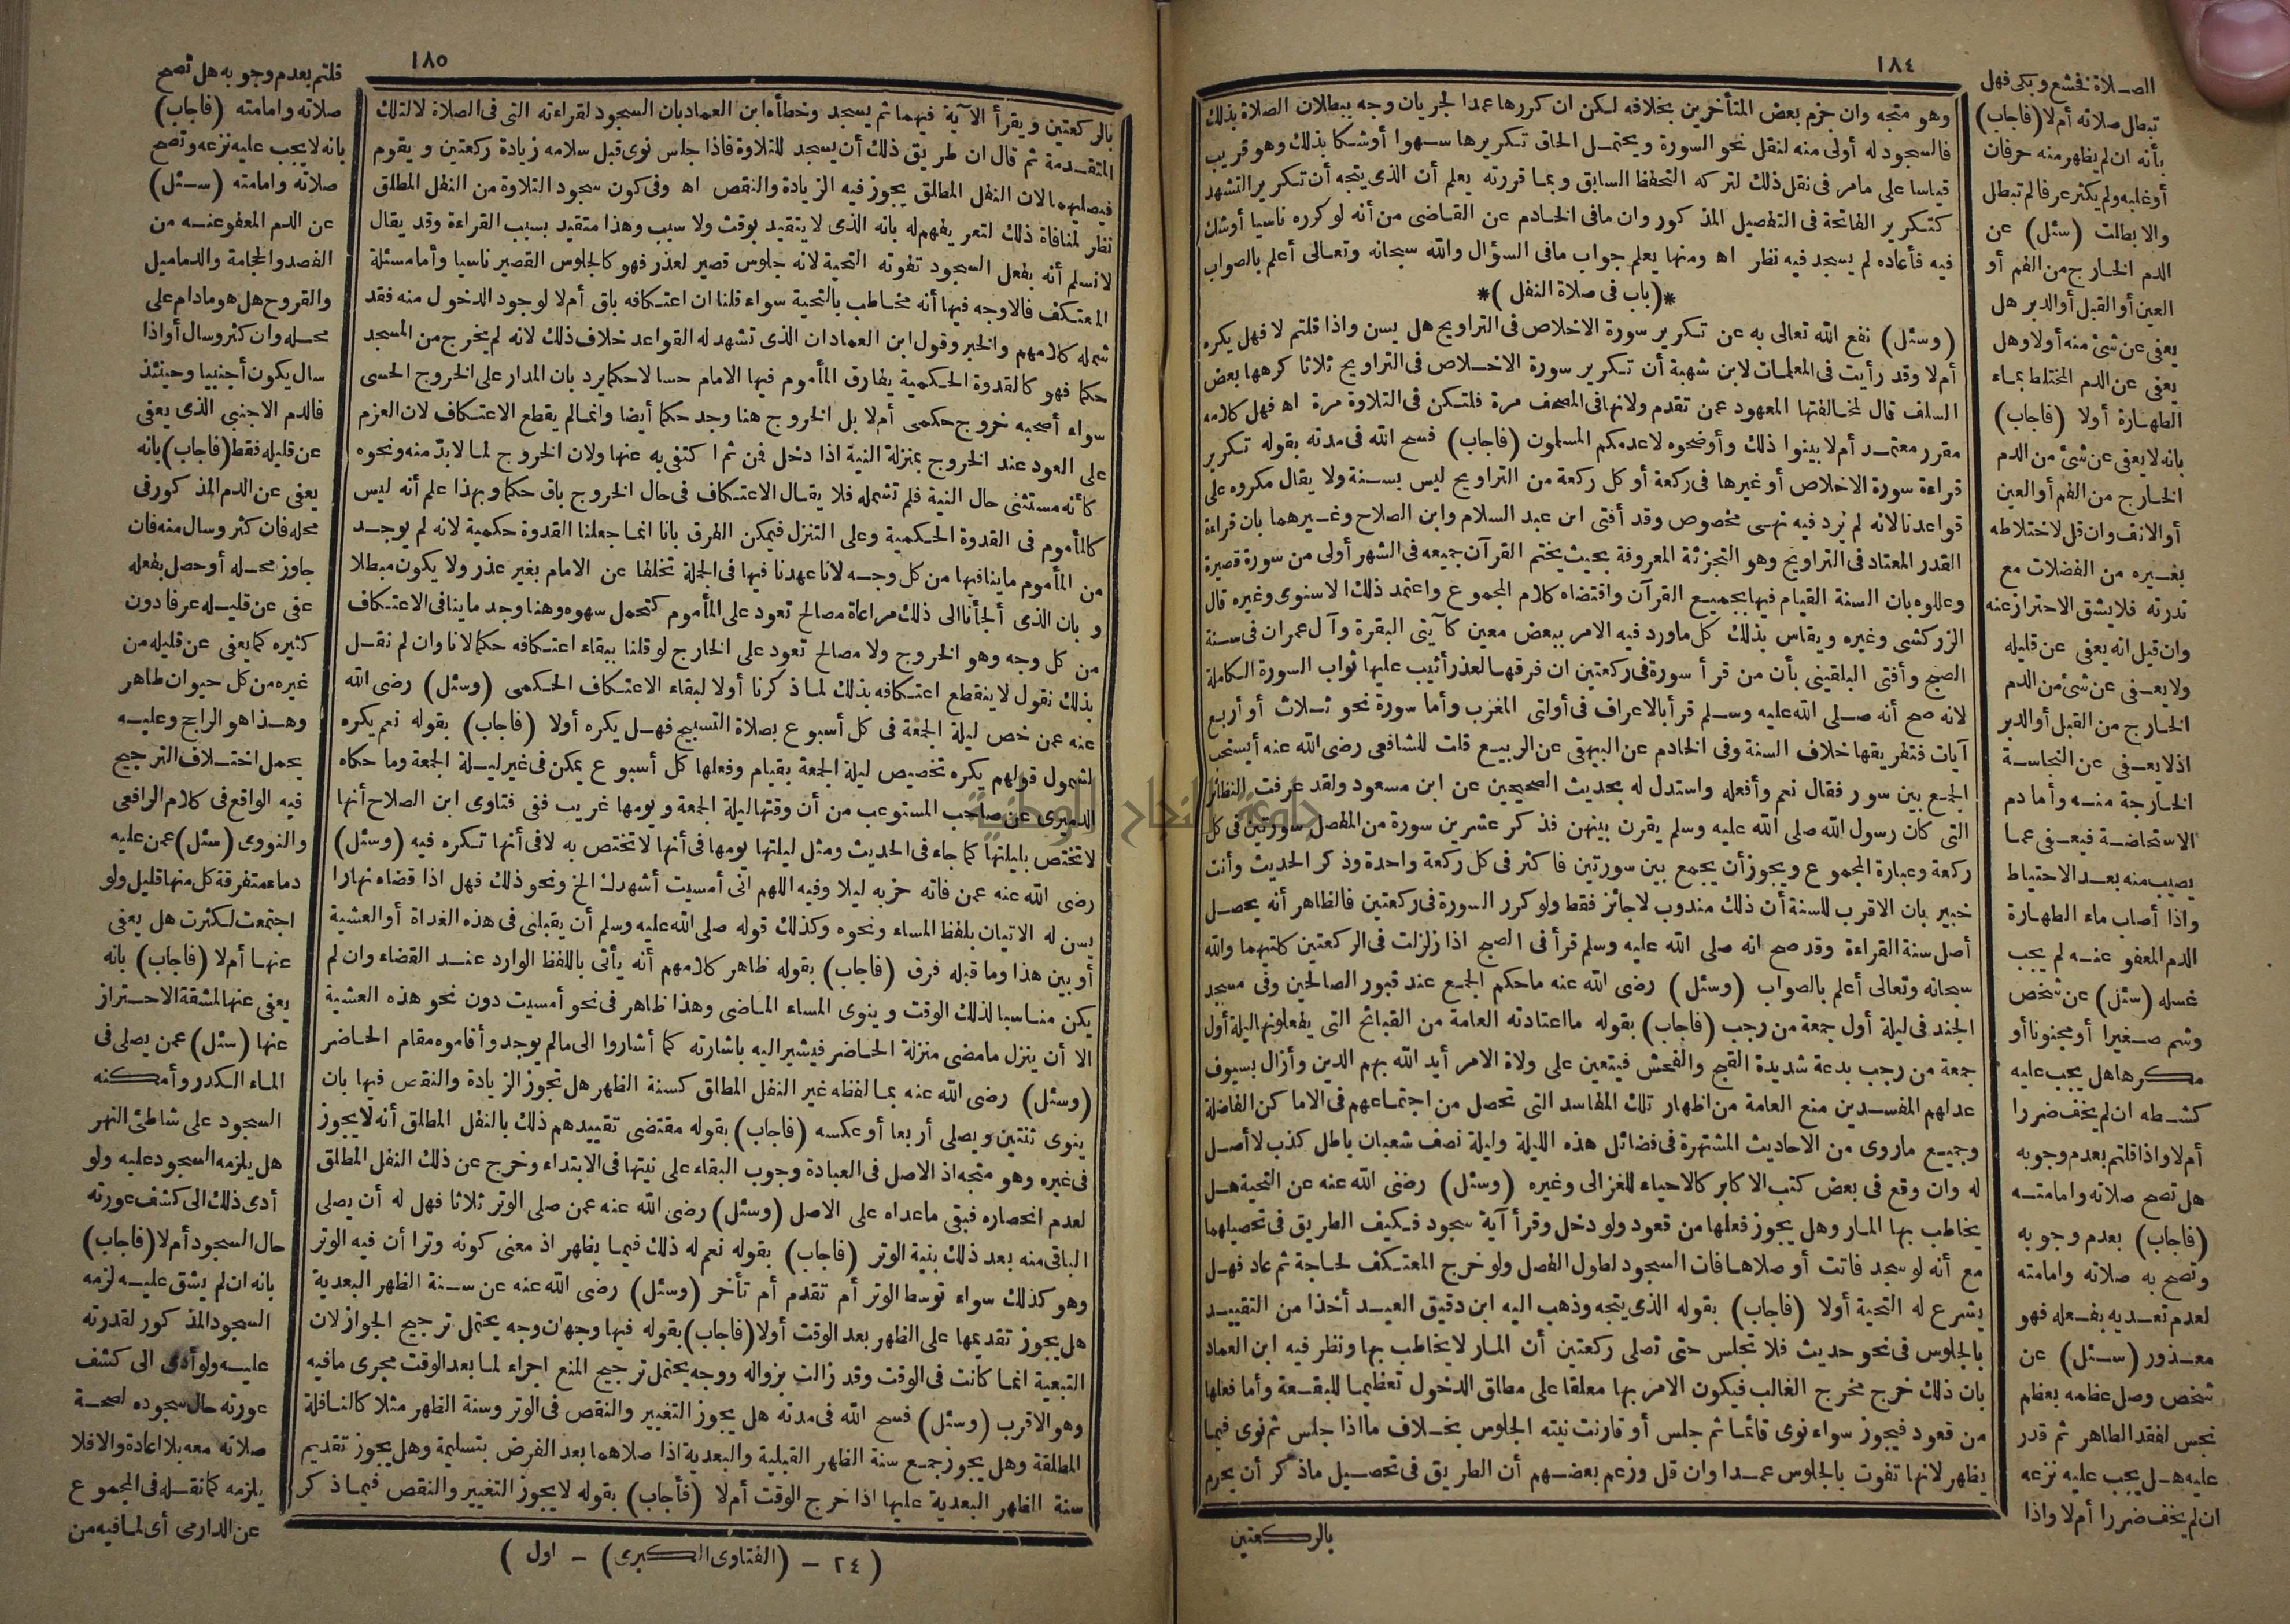 ١٨٤
وهو متجه وان جزم بعض المتأخرين بخلافه لكن ان كررها عمدا لجريان وجه ببطلان الصلاة بذلك
فالسجود له أولى منه لنقل نحو السورة ويحتمل الحاق تكريرها سهوا أو شكا بذلك وهو قريب
قياسا على مامر فى نقل ذلك لتركه التحفظ السابق وبما قررته يعلم أن الذى يتجه أن تكرير التشهد
كتكرير الفاتحة فى التفصيل المذكور وان مافى الخادم عن القاضى من أنه لو كرره ناسيا أو شك
فيه فأعاده لم يسجد فيه نظر اه ومنها يعلم جواب مافى السؤال والله سبحانه وتعالى أعلم بالصواب
*(باب فى صلاة النفل)*
(وسئل) نفع الله تعالى به عن تكرير سورة الاخلاص فى التراويح هل يسن واذا قلتم لا فهل يكره
أم لا وقد رأيت فى المعلمات لابن شهبة أن تكرير سورة الاخلاص فى التراويح ثلاثا كرهها بعض
السلف قال لمخالفتها المعهود عمن تقدم ولانها فى المصحف مرة فلتكن فى التلاوة مرة اه فهل كلامه
مقرر معتمد أم لا بينوا ذلك وأوضحوه لاعدمكم المسلمون (فاجاب) فسح الله فى مدته بقوله تكرير
قراءة سورة الاخلاص أو غيرها فى ركعة أو كل ركعة من التراويح ليس بسنة ولا يقال مكروه على
قواعدنا لانه لم يرد فيه نهى مخصوص وقد أفتى ابن عبد السلام وابن الصلاح وغيرهما بان قراءة
القدر المعتاد فى التراويح وهو التجزئة المعروفة بحيث يختم القرآن جميعه فى الشهر أولى من سورة قصيرة
وعللوه بان السنة القيام فيها بجميع القرآن واقتضاه كلام المجموع واعتمد ذلك الاسنوى وغيره قال
الزركشى وغيره ويقاس بذلك كل ماورد فيه الامر ببعض معين كآيتى البقرة وآل عمران فى سنة
الصبح وأفتى البلقينى بأن من قرأ سورة فى ركعتين ان فرقها لعذر أثيب عليها ثواب السورة الكاملة
لانه صح أنه صلى الله عليه وسلم قرأ بالاعراف فى أولتى المغرب وأما سورة نحو ثلاث أو أربع
آيات فتفريقها خلاف السنة وفى الخادم عن البيهقى عن الربيع قلت للشافعى رضى الله عنه أيستحب
الجمع بين سور فقال نعم وأفعله واستدل له بحديث الصحيحين عن ابن مسعود ولقد عرفت النظائر
التى كان رسول الله صلى الله عليه وسلم يقرن بينهن فذكر عشرين سورة من المفصل سورتين فى كل
ركعة وعبارة المجموع ويجوز أن يجمع بين سورتين فاكثر فى كل ركعة واحدة وذكر الحديث وأنت
خبير بان الاقرب للسنة أن ذلك مندوب لا جائز فقط ولو كرر السورة فى ركعتين فالظاهر أنه يحصل
أصل سنة القراءة وقد صح انه صلى الله عليه وسلم قرأ فى الصبح اذا زلزلت فى الركعتين كلتيهما والله
سبحانه وتعالى أعلم بالصواب (وسئل) رضى الله عنه ما حكم الجمع عند قبور الصالحين وفى مسجد
الجند فى ليلة أول جمعة من رجب (فاجاب) بقوله مااعتادته العامة من القبائح التى يفعلونها ليلة أول
جمعة من رجب بدعة شديدة القبح والفحش فيتعين على ولاة الامر أيد الله بهم الدين وأزال بسيوف
عدلهم المفسدين منع العامة من اظهار تلك المفاسد التى تحصل من اجتماعهم فى الاماكن الفاضلة
وجميع ماروى من الاحاديث المشتهرة فى فضائل هذه الليلة وليلة نصف شعبان باطل كذب لا أصل
له وان وقع فى بعض كتب الاكابر كالاحياء للغزالى وغيره (وسئل) رضى الله عنه عن التحية هل
يخاطب بها المار وهل يجوز فعلها من قعود ولو دخل وقرأ آية سجود فكيف الطريق فى تحصيلهما
مع أنه لو سجد فاتت أو صلاها فات السجود لطول الفصل ولو خرج المعتكف لحاجة ثم عاد فهل
يشرع له التحية أولا (فاجاب) بقوله الذى يتجه وذهب اليه ابن دقيق العيد أخذا من التقييد
بالجلوس فى نحو حديث فلا تجلس حتى تصلى ركعتين أن المار لا يخاطب بها ونظر فيه ابن العماد
بان ذلك خرج مخرج الغالب فيكون الامر بها معلقا على مطلق الدخول تعظيما للبقعة وأما فعلها
من قعود فيجوز سواء نوى قائما ثم جلس أو قارنت نيته الجلوس بخلاف مااذا جلس ثم نوى فيما
يظهر لانها تفوت بالجلوس عمدا وان قل وزعم بعضهم أن الطريق فى تحصيل ماذكر أن يحرم
بالركعتين
الصلاة فخشع وبكى فهل
تبطل صلاته أم لا (فاجاب)
بأنه ان لم يظهر منه حرفان
أو غلبه ولم يكثر عرفا لم تبطل
والا بطلت (سئل) عن
الدم الخارج من الفم أو
العين أو القبل أو الدبر هل
يعفى عن شئ منه أولا وهل
يعفى عن الدم المختلط بماء
الطهارة أولا (فاجاب)
بانه لا يعفى عن شئ من الدم
الخارج من الفم أو العين
أو الانف وان قل لاختلاطه
بغيره من الفضلات مع
ندرته فلا يشق الاحتراز عنه
وان قيل انه يعفى عن قليله
ولا يعفى عن شئ من الدم
الخارج من القبل أو الدبر
اذ لا يعفى عن النجاسة
الخارجة منه وأما دم
الاستحاضة فيعفى عما
يصيب منه بعد الاحتياط
واذا أصاب ماء الطهارة
الدم المعفو عنه لم يجب
غسله (سئل) عن شخص
وشم صغيرا أو مجنونا أو
مكرها هل يجب عليه
كشطه ان لم يخف ضررا
أم لا واذا قلتم بعدم وجوبه
هل تصح صلاته وامامته
(فاجاب) بعدم وجوبه
وتصح به صلاته وامامته
لعدم تعديه بفعله فهو
معذور (سئل) عن
شخص وصل عظمه بعظم
نجس لفقد الطاهر ثم قدر
عليه هل يجب عليه نزعه
ان لم يخف ضررا أم لا واذا
١٨٥
بالركعتين ويقرأ الآية فيهما ثم يسجد وخطأه ابن العماد بان السجود لقراءته التى فى الصلاة لا لتلك
المتقدمة ثم قال ان طريق ذلك أن يسجد للتلاوة فاذا جلس نوى قبل سلامه زيادة ركعتين ويقوم
فيصليهما لان النفل المطلق يجوز فيه الزيادة والنقص اه وفى كون سجود التلاوة من النفل المطلق
نظر لمنافاة ذلك لتعريفهم له بانه الذى لا يتقيد بوقت ولا سبب وهذا متقيد بسبب القراءة وقد يقال
لا نسلم أنه بفعل السجود تفوته التحية لانه جلوس قصير لعذر فهو كالجلوس القصير ناسيا وأما مسئلة
المعتكف فالاوجه فيها أنه مخاطب بالتحية سواء قلنا ان اعتكافه باق أم لا لوجود الدخول منه فقد
شمله كلامهم والخبر وقول ابن العماد ان الذى تشهد له القواعد خلاف ذلك لانه لم يخرج من المسجد
حكما فهو كالقدوة الحكمية يفارق المأموم فيها الامام حسا لا حكما يرد بان المدار على الخروج الحسى
سواء أصحبه خروج حكمى أم لا بل الخروج هنا وجد حكما أيضا وانما لم يقطع الاعتكاف لان العزم
على العود عند الخروج بمنزلة النية اذا دخل فمن ثم اكتفى به عنها ولان الخروج لما لا بد منه ونحوه
كأنه مستثنى حال النية فلم تشمله فلا يقال الاعتكاف فى حال الخروج باق حكما وبهذا علم أنه ليس
كالمأموم فى القدوة الحكمية وعلى التنزل فيمكن الفرق بانا انما جعلنا القدوة حكمية لانه لم يوجد
من المأموم ما ينافيها من كل وجه لانا عهدنا فيها فى الجملة تخلفا عن الامام بغير عذر ولا يكون مبطلا
وبان الذى ألجأنا الى ذلك مراعاة مصالح تعود على المأموم كتحمل سهوه وهنا وجد ما ينافى الاعتكاف
من كل وجه وهو الخروج ولا مصالح تعود على الخارج لو قلنا ببقاء اعتكافه حكما لانا وان لم نقل
بذلك نقول لا ينقطع اعتكافه بذلك لما ذكرنا أولا لبقاء الاعتكاف الحكمى (وسئل) رضى الله
عنه عمن خص ليلة الجمعة فى كل أسبوع بصلاة التسبيح فهل يكره أولا (فاجاب) بقوله نعم يكره
لشمول قولهم يكره تخصيص ليلة الجمعة بقيام وفعلها كل أسبوع يمكن فى غير ليلة الجمعة وما حكاه
الدميرى عن صاحب المستوعب من أن وقتها ليلة الجمعة ويومها غريب ففى فتاوى ابن الصلاح أنها
لا تختص بليلتها كما جاء فى الحديث ومثل ليلتها يومها فى أنها لا تختص به لا فى أنها تكره فيه (وسئل)
رضى الله عنه عمن فاته حزبه ليلا وفيه اللهم انى أمسيت أشهدك الخ ونحو ذلك فهل اذا قضاه نهارا
يسن له الاتيان بلفظ المساء ونحوه وكذلك قوله صلى الله عليه وسلم أن يقبلنى فى هذه الغداة أو العشية
أو بين هذا وما قبله فرق (فاجاب) بقوله ظاهر كلامهم أنه يأتى باللفظ الوارد عند القضاء وان لم
يكن مناسبا لذلك الوقت وينوى المساء الماضى وهذا ظاهر فى نحو أمسيت دون نحو هذه العشية
الا أن ينزل مامضى منزلة الحاضر فيشير اليه باشارته كما أشاروا الى مالم يوجد وأقاموه مقام الحاضر
(وسئل) رضى الله عنه بما لفظه غير النفل المطلق كسنة الظهر هل تجوز الزيادة والنقص فيها بان
ينوى ثنتين ويصلى أربعا أو عكسه (فاجاب) بقوله مقتضى تقييدهم ذلك بالنفل المطلق أنه لا يجوز
فى غيره وهو متجه اذ الاصل فى العبادة وجوب البقاء على نيتها فى الابتداء وخرج عن ذلك النفل المطلق
لعدم انحصاره فبقى ماعداه على الاصل (وسئل) رضى الله عنه عمن صلى الوتر ثلاثا فهل له أن يصلى
الباقى منه بعد ذلك بنية الوتر (فاجاب) بقوله نعم له ذلك فيما يظهر اذ معنى كونه وترا أن فيه الوتر
وهو كذلك سواء توسط الوتر أم تقدم أم تأخر (وسئل) رضى الله عنه عن سنة الظهر البعدية
هل يجوز تقديمها على الظهر بعد الوقت أولا (فاجاب) بقوله فيها وجهان وجه يحتمل ترجيح الجواز لان
التبعية انما كانت فى الوقت وقد زالت بزواله ووجه يحتمل ترجيح المنع اجراء لما بعد الوقت مجرى مافيه
وهو الاقرب (وسئل) فسح الله فى مدته هل يجوز التغيير والنقص فى الوتر وسنة الظهر مثلا كالنافلة
المطلقة وهل يجوز جمع سنة الظهر القبلية والبعدية اذا صلاهما بعد الفرض بتسليمة وهل يجوز تقديم
سنة الظهر البعدية عليها اذا خرج الوقت أم لا (فأجاب) بقوله لا يجوز التغيير والنقص فيما ذكر
قلتم بعدم وجوبه هل تصح
صلاته وامامته (فاجاب)
بانه لا يجب عليه نزعه وتصح
صلاته وامامته (سئل)
عن الدم المعفو عنه من
الفصد والحجامة والدماميل
والقروح هل هو مادام على
محله وان كثر وسال أو اذا
سال يكون أجنبيا وحينئذ
فالدم الاجنبى الذى يعفى
عن قليله فقط (فاجاب) بانه
يعفى عن الدم المذكور فى
محله فان كثر وسال منه فان
جاوز محله أو حصل بفعله
عفى عن قليله عرفا دون
كثيره كما يعفى عن قليله من
غيره من كل حيوان طاهر
وهذا هو الراجح وعليه
يحمل اختلاف الترجيح
فيه الواقع فى كلام الرافعى
والنووى (سئل) عمن عليه
دماء متفرقة كل منها قليل ولو
اجتمعت لكثرت هل يعفى
عنها أم لا (فاجاب) بانه
يعفى عنها لمشقة الاحتراز
عنها (سئل) عمن يصلى فى
الماء الكدر وأمكنه
السجود على شاطئ النهر
هل يلزمه السجود عليه ولو
أدى ذلك الى كشف عورته
حال السجود أم لا (فاجاب)
بانه ان لم يشق عليه لزمه
السجود المذكور لقدرته
عليه ولو أدى الى كشف
عورته حال سجوده لصحة
صلاته معه بلا اعادة والا فلا
يلزمه كما نقله فى المجموع
عن الدارمى أى لما فيه من
(٢٤ - (الفتاوى الكبرى) - اول)
جامعة النجاح الوطنية